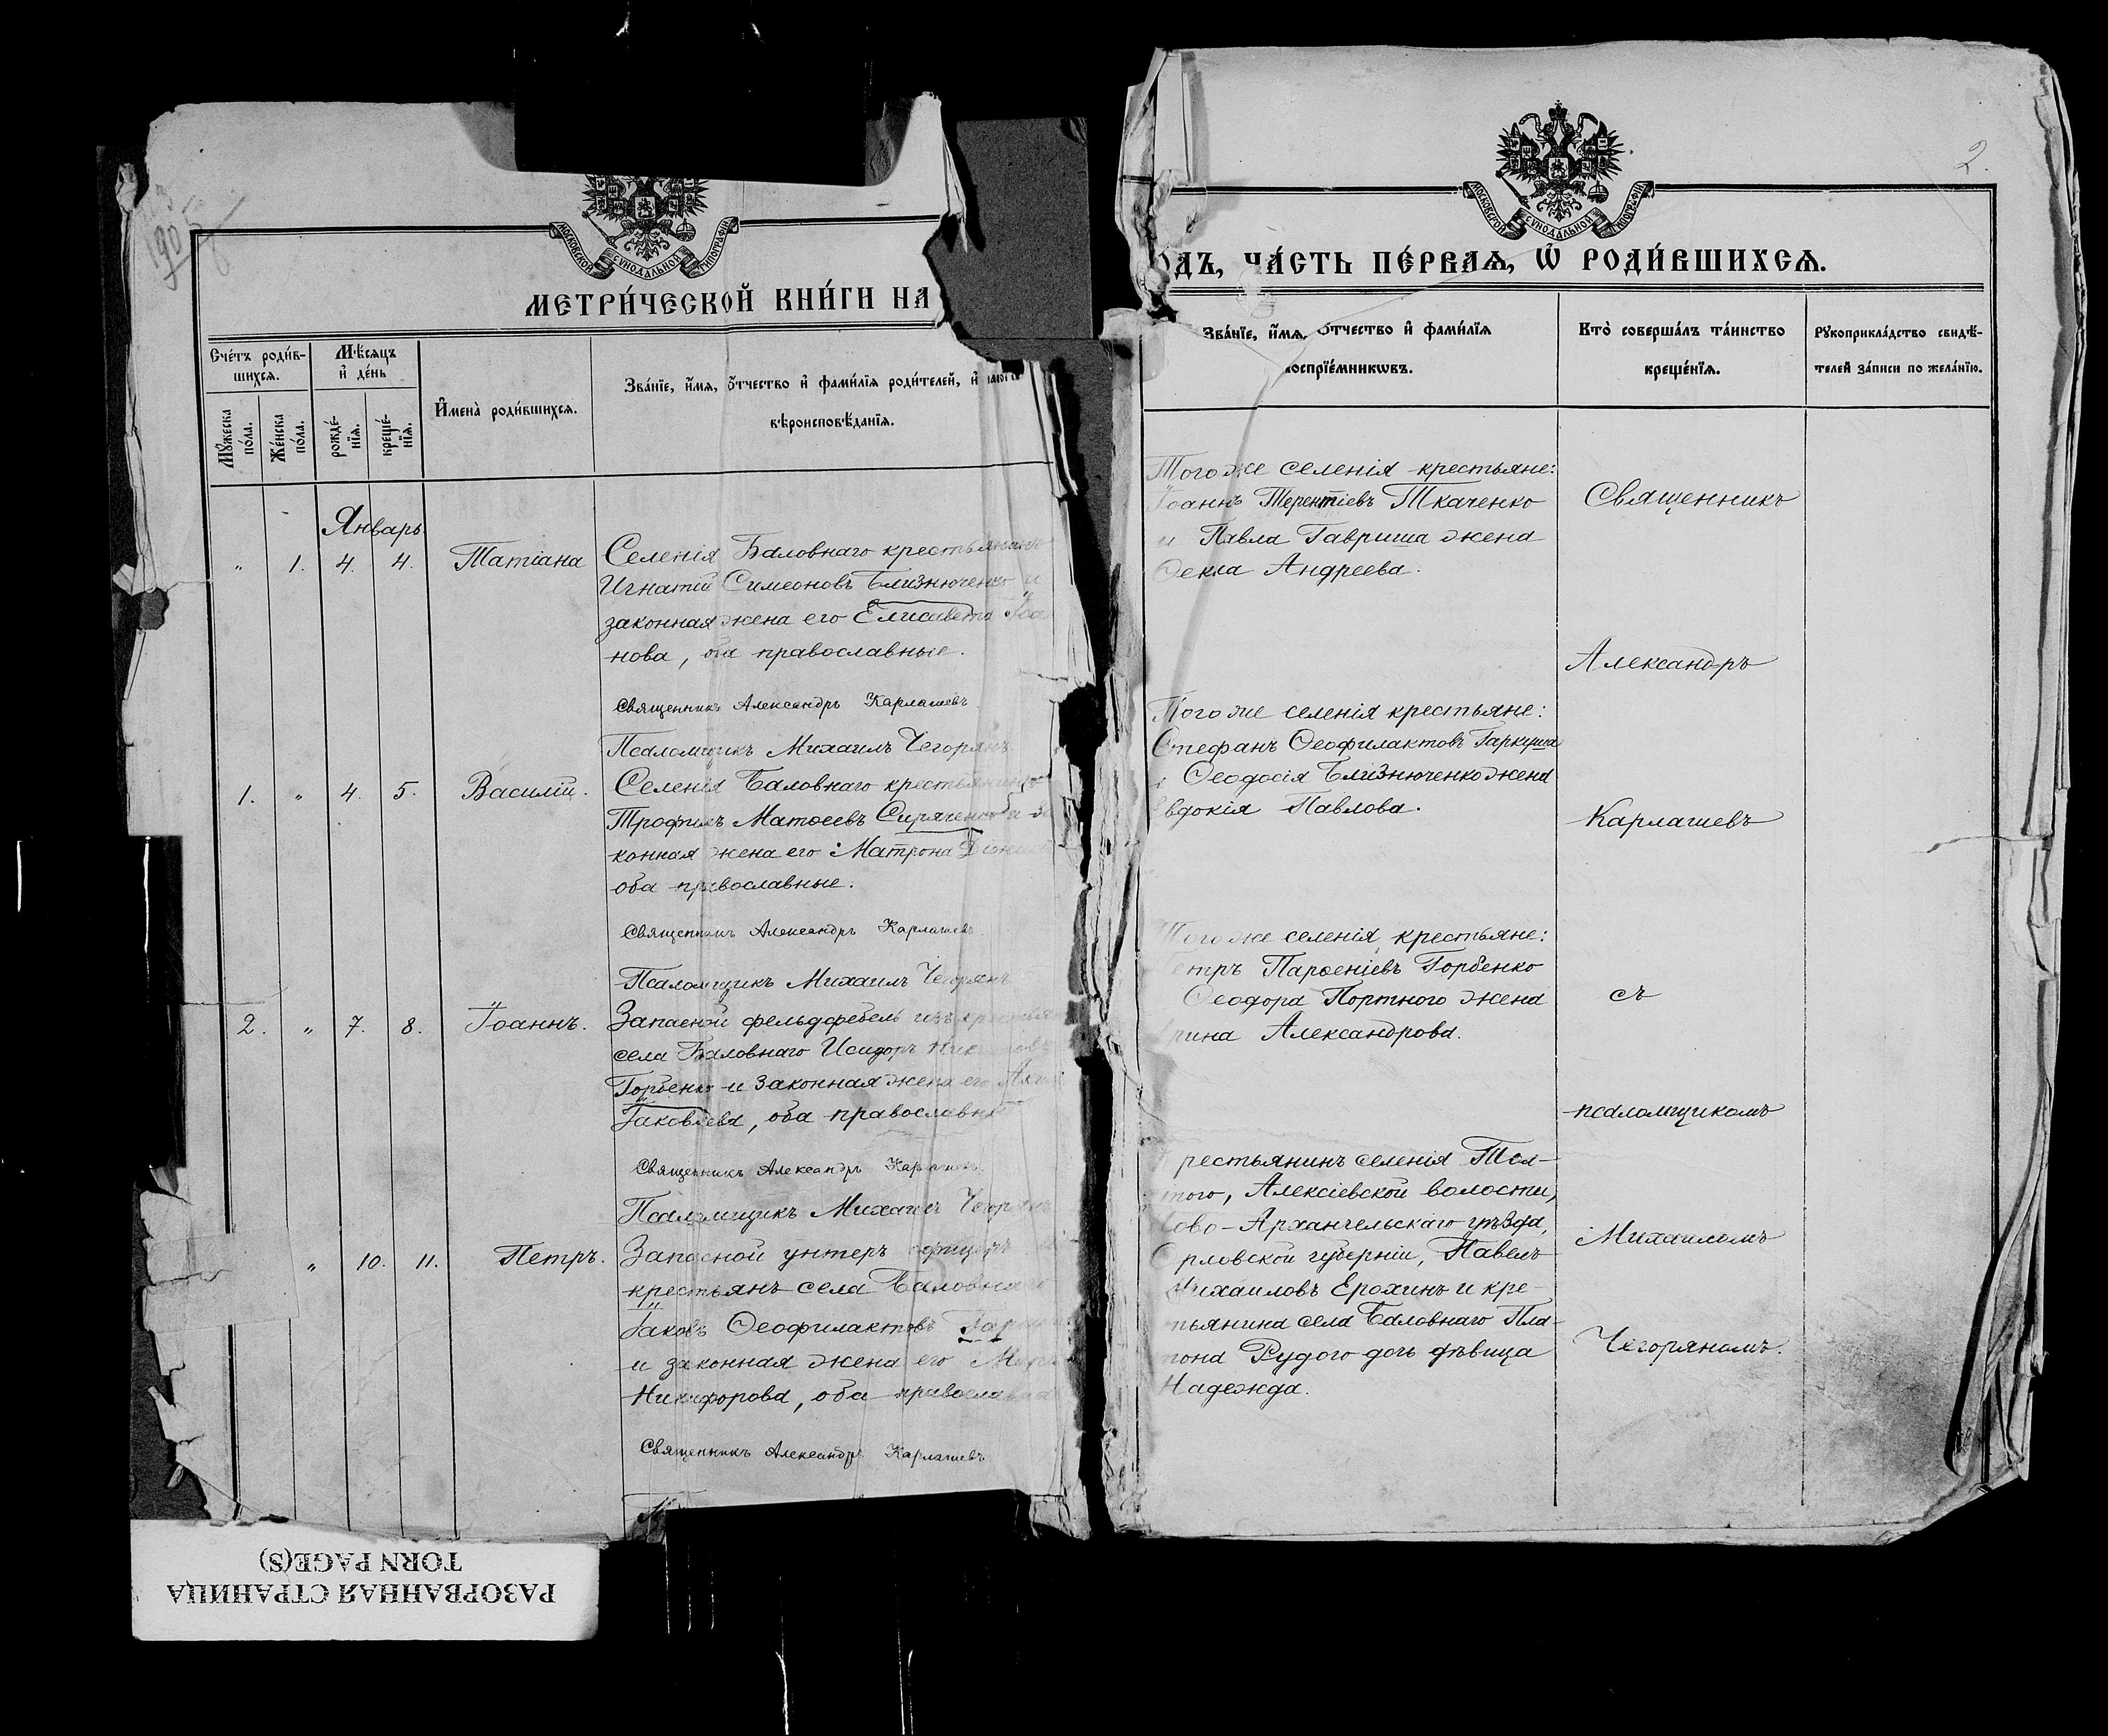 2.
МОСКОВСКОЙ СѴНОДАЛЬНОЙ ТИПОГРАФІИ
МЕТРИ́ЧЕСКОЙ КНИ́ГИ НА
Сче́тъ роди́в-
шихсѧ.
Мѣ́сѧцъ
и҆ де́нь
Мꙋ́жеска
по́ла.
Же́нска
по́ла.
рожде́-
нїѧ.
креще́-
нїѧ.
И҆мена̀ роди́вшихсѧ.
Зва́нїе, и҆́мѧ, ѻ҆́тчество и҆ фами́лїѧ роди́телей, и҆
вѣроисповѣ́данїѧ.
Январь
„ 1. 4. 4. Татіана
Селенія Баловнаго крестьянинъ
Игнатій Симеоновъ Близнюченко и
законная жена его Елисавета Іоа
нова, оба православные.
Священникъ Александръ Карлашевъ
Псаломщикъ Михаилъ Чегорянъ
1. „ 4. 5. Василій.
Селенія Баловнаго крестьянинъ
Трофимъ Матѳеевъ Сиряченко и за
конная жена его Матрона
оба православные.
Священникъ Александръ Карлашевъ
Псаломщикъ Михаилъ Чегорянъ
2. „ 7. 8. Іоаннъ.
Запасной фельдфебель изъ крестьян
села Баловнаго Исидоръ
Горбенко и законная жена его
Іаковлева, оба православные
Священникъ Александръ Карлашевъ
Псаломщикъ Михаилъ Чегорянъ
„ 10. 11. Петръ.
Запасной унтеръ офицеръ
крестьянъ села Баловнаго
Іаковъ Ѳеофилактовъ
и законная жена его
Никифорова, оба православные
Священникъ Александръ Карлашевъ
МОСКОВСКОЙ СѴНОДАЛЬНОЙ ТИПОГРАФІИ
ОДЪ, ЧА́СТЬ ПЕ́РВАѦ, Ѿ РОДИ́ВШИХСѦ.
Зва́нїе, и҆́мѧ, ѻ҆́тчество и҆ фами́лїѧ
воспрїе́мникѡвъ.
Кто̀ соверша́лъ та́инство
креще́нїѧ.
Рꙋкоприкла́дство свидѣ́-
телей за́писи по жела́нїю.
Того же селенія крестьяне:
Іоаннъ Терентіевъ Ткаченко
и Павла Гавриша жена
Ѳекла Андреева.
Того же селенія крестьяне:
Стефанъ Ѳеофилактовъ Гаркуша
и Ѳеодосія Близнюченко жена
Евдокія Павлова.
Того же селенія крестьяне:
Петръ Парѳеніевъ Горбенко
Ѳеодора Портного жена
рина Александрова.
Крестьянинъ селенія Тол-
того, Алексіевской волости,
Ново-Архангельскаго уѣзда,
Орловской губерніи, Павелъ
Михаиловъ Ерохинъ и кре-
тьянина села Баловнаго Пла-
тона Рудого дочь дѣвица
Надежда.
Священникъ
Александръ
Карлашевъ
съ
псаломщикомъ
Михаиломъ
Чегоряномъ.
РАЗОРВАННАЯ СТРАНИЦА
TORN PAGE(S)